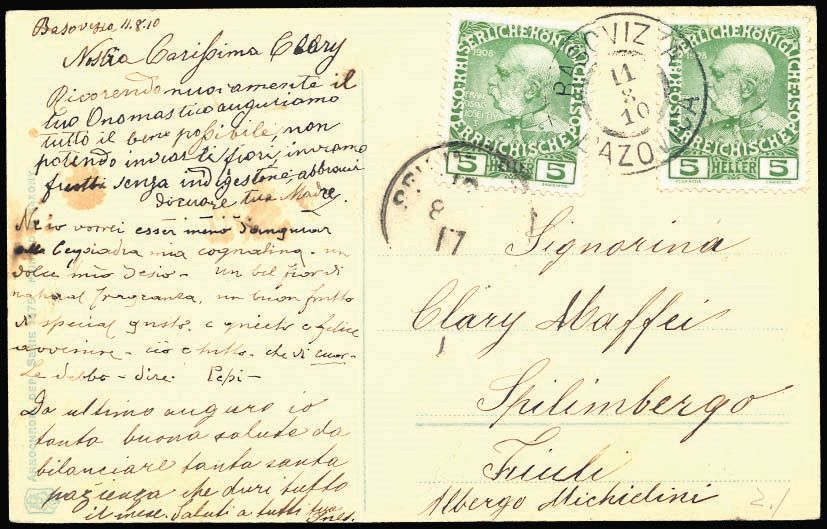 Basovizza 11.8.10
Nostra Carissima Clary
Ricorendo nuovamente il
tuo Onomastico auguriamo
tutto il bene possibile, non
potendo inviarti fiori, inviamo
frutti senza indigestione, abbracci
di cuore tua Madre.
Ne io vorrei esser meno d'augurar
alla mia cognatina - un
dolce mio desio - un bel fior di
natural fragranza, un buon frutto
di special gusto - e quieto e felice
avvenire - ciò e tutto - che di cuor-
te debbo - dire. Pepi -
Da ultimo auguro io
tanta buona salute da
bilanciare tanta santa
pazienza che duri tutto
il mese. Saluti a tutti tua
Ines.
KAISERLICHE KÖNIGLICHE ÖSTERREICHISCHE POST
1908
FRANCISCUS JOSEFUS I
5 HELLER 5
KAISERLICHE KÖNIGLICHE ÖSTERREICHISCHE POST
1908
5 HELLER 5
BASOVIZZA
11
8
10
BAZOVICA
8
17
Signorina
Clary Maffei
Spilimbergo
Friuli
Albergo Michielini